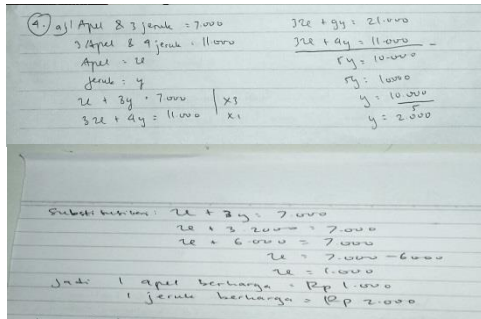 4. a) 1 Apel & 3 jeruk = 7.000
3 Apel & 4 jeruk = 11.000
Apel = x
jeruk = y
x + 3y = 7.000 | x3
3x + 4y = 11.000 | x1
3x + 9y = 21.000
3x + 4y = 11.000 -
5y = 10.000
5y = 10000
y = 10.000
5
y = 2.000
Substitusikan : x + 3y = 7.000
x + 3.2000 = 7.000
x + 6.000 = 7.000
x = 7.000 - 6000
x = 1.000
Jadi 1 apel berharga = Rp 1.000
1 jeruk berharga = Rp 2.000